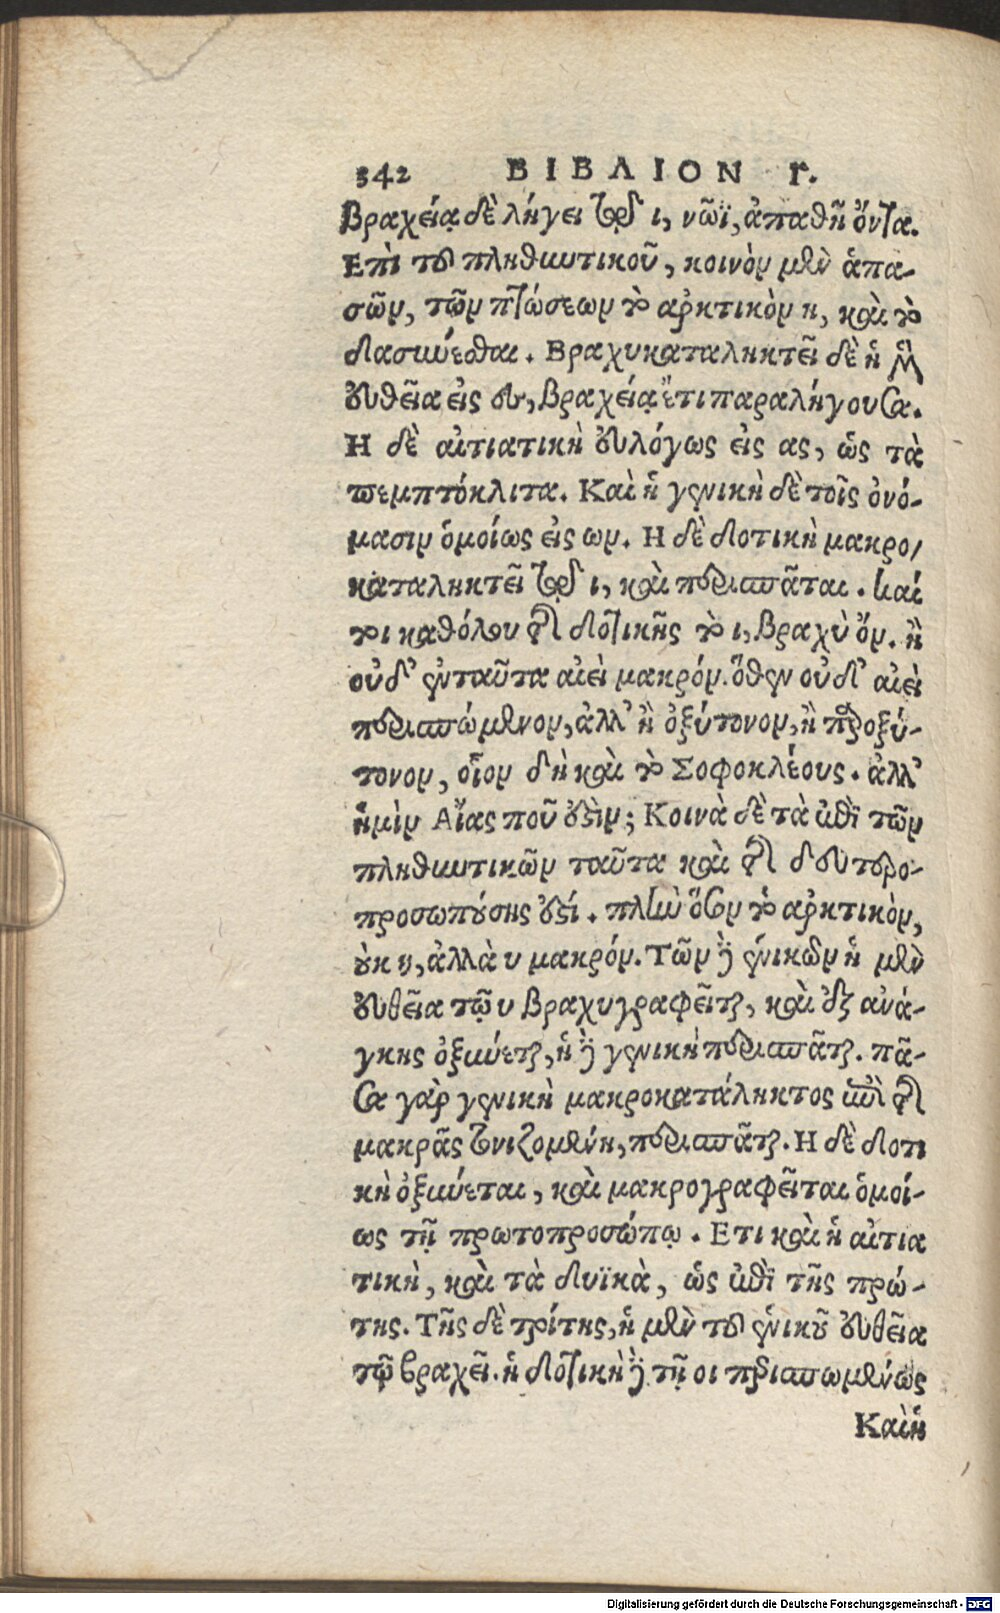 342 ΒΙΒΛΙΟΝ Γ.
Βραχείᾳ δὲ λήγει τῷ ι, νῶϊ, ἀπαθῆ ὄντα.
Επὶ τοῦ πληθυντικοῦ, κοινὸν μὲν ἁπα-
σῶν, τῶν πτώσεων τὸ ἀρκτικὸν η, καὶ τὸ
δασύνεσθαι. Βραχυκαταληκτεῖ δὲ ἡ μὲν
εὐθεῖα εἰς ες, βραχείᾳ ἔτι παραλήγουσα.
Η δὲ αἰτιατικὴ εὐλόγως εἰς ας, ὡς τὰ
πεμπτόκλιτα. Καὶ ἡ γενικὴ δὲ τοῖς ὀνό-
μασιν ὁμοίως εἰς ων. Η δὲ δοτικὴ μακρο-
καταληκτεῖ τῷ ι, καὶ περισπᾶται. καί
τοι καθόλου τῆς δοτικῆς τὸ ι, βραχὺ ὄν. ἢ
οὐδ' ἐνταῦτα αἰεὶ μακρόν. ὅθεν οὐδ' αἰεὶ
περισπώμενον, ἀλλ' ἢ ὀξύτονον, ἢ προξύ-
τονον, οἷον δὴ καὶ τὸ Σοφοκλέους. ἀλλ'
ἡμὶν Αἴας ποῦ ἐστὶν; Κοινὰ δὲ τὰ ἐπὶ τῶν
πληθυντικῶν ταῦτα καὶ τῆς δευτερο-
προσωπούσης ἐστί. πλὴν ὅσον τὸ ἀρκτικὸν,
οὐκ η, ἀλλὰ υ μακρόν. Τῶν δὲ ἑνικῶν ἡ μὲν
εὐθεῖα τῷ υ βραχυγραφεῖται, καὶ ἐξ ἀνά-
γκης ὀξύνεται, ἡ δὲ γενικὴ περισπᾶται. πᾶ-
σα γὰρ γενικὴ μακροκατάληκτος ἐπὶ τῆς
μακρᾶς τονιζομένη, περισπᾶται. Η δὲ δοτι
κὴ ὀξύνεται, καὶ μακρογραφεῖται ὁμοί-
ως τῇ πρωτοπροσώπῳ. Ετι καὶ ἡ αἰτια
τικὴ, καὶ τὰ δυϊκὰ, ὡς ἐπὶ τῆς πρώ-
της. Τῆς δὲ τρίτης, ἡ μὲν τοῦ ἑνικοῦ εὐθεῖα
τῷ βραχεῖ. ἡ δοτικὴ δὲ τῇ οι περισπωμένως
Καὶ ἡ
Digitalisierung gefördert durch die Deutsche Forschungsgemeinschaft - DFG